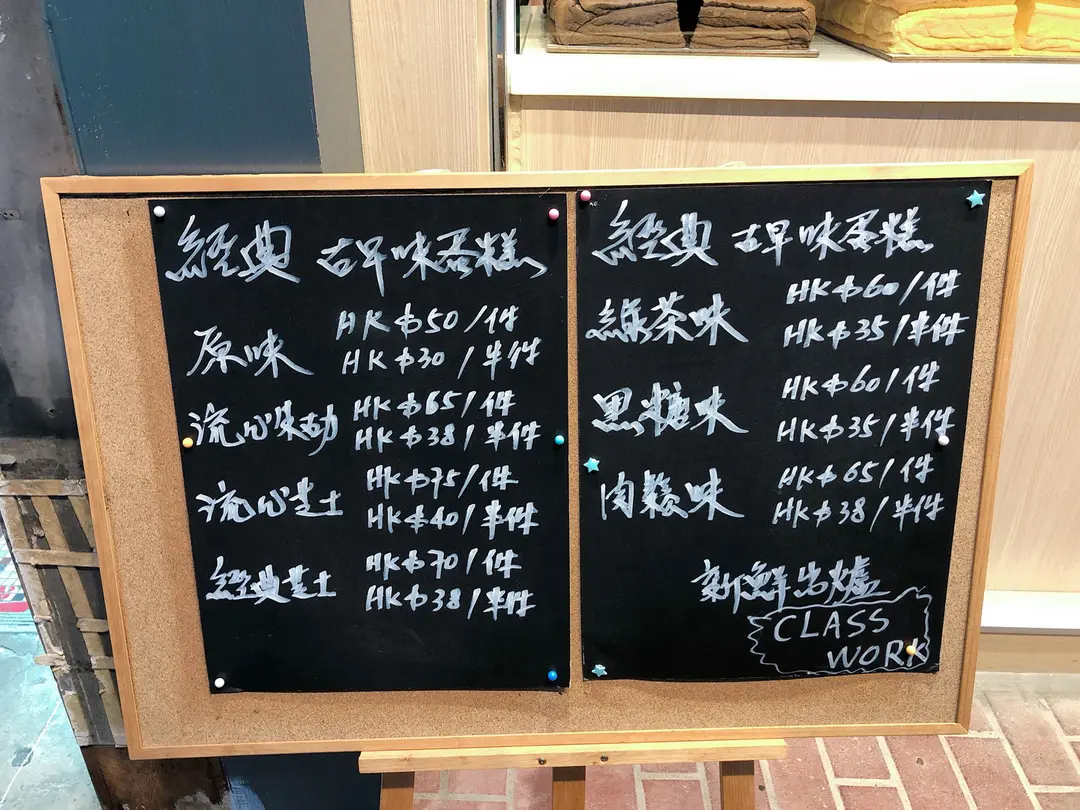 經典 古早味蛋糕
原味 HK$50/件
HK$30/半件
流心朱古力 HK$65/件
HK$38/半件
流心芝士 HK$75/件
HK$40/半件
經典芝士 HK$70/件
HK$38/半件
經典 古早味蛋糕
綠茶味 HK$60/件
HK$35/半件
黑糖味 HK$60/件
HK$35/半件
肉鬆味 HK$65/件
HK$38/半件
新鮮出爐
CLASS
WORK